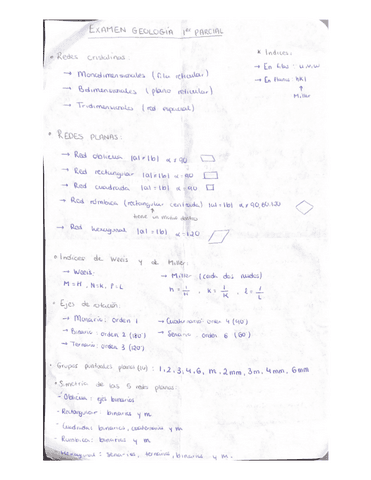 EXAMEN GEOLOGÍA 1er PARCIAL
• Redes cristalinas:
→ Monodimensionales (fila reticular)
→ Bidimensionales (plano reticular)
→ Tridimensionales (red espacial)
* Indices:
→ En fila: u.v.w
→ En plano: hkl
↑
Miller
• REDES PLANAS:
→ Red oblicua |a|≠|b| α≠90
→ Red rectangular |a|≠|b| α=90
→ Red cuadrada |a|=|b| α=90
→ Red rómbica (rectangular centrada) |a|=|b| α≠90,60,120
↑
tiene un nudo dentro
→ Red hexagonal |a|=|b| α=120
• Indices de Weiss y de Miller:
→ Weiss: → Miller: (cada dos nudos)
M=H, N=K, P=L h=1/H, k=1/K, l=1/L
• Ejes de rotación:
→ Monario, orden 1 → Cuaternario: orden 4 (90°)
→ Binario, orden 2 (180°) → Senario, orden 6 (60°)
→ Ternario, orden 3 (120°)
• Grupos puntuales planos (10): 1, 2, 3, 4, 6, m, 2mm, 3m, 4mm, 6mm
• Simetría de las 5 redes planas:
- Oblicua: ejes binarios
- Rectangular: binarios y m
- Cuadrada: binarios, cuaternarios y m
- Rómbica: binarios y m
- Hexagonal: senarios, ternarios, binarios y m.